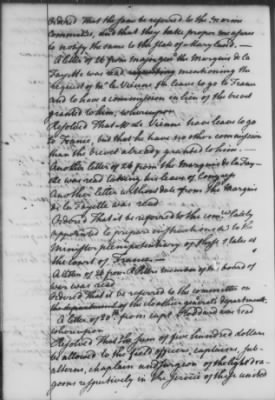 Ordered That the same be referred to the marine
Committee, and that they take proper measures
to notify the same to the State of Maryland.—
A letter of 26 from major genl the Marquis de la
Fayette was read mentioning the
request of Mr. le Vienne for leave to go to France
and to have a commission in lieu of the brevet
granted to him, whereupon
Resolved That Mr. de Vienne have leave to go
to France, but that he have no other commission
than the brevet already granted to him.—
Another letter of 26 from the Marquis de la Fay-
ette was read taking his leave of Congress
Another letter without date from the Marquis
de la Fayette was read
Ordered That it be referred to the comee lately
appointed to prepare instructions to the
Minister plenipotentiary of these U. States at the
court of France.—
A letter of 26 from P. Peters member of the board of
war was read
Ordered That it be referred to the committee on
the department of the cloathier general's department.
A letter of 30th from capt Stoddard was read
whereupon
Resolved That the sum of five hundred dollars
be allowed to the field officers, captains, sub-
alterns, chaplain and surgeon of the light dra-
goons respectively in the service of these united